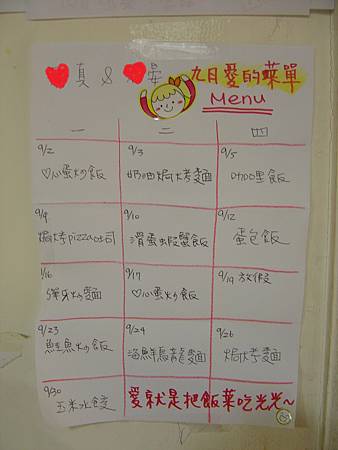 真 & 晏 九月愛的菜單
Menu
一 二 四
9/2 9/3 9/5
♡心蛋炒飯 奶油焗烤麵 咖哩飯
9/9 9/10 9/12
焗烤pizza吐司 滑蛋蝦蟹飯 蛋包飯
9/16 9/17 9/19 放假
蚵仔炒麵 ♡心蛋炒飯
9/23 9/24 9/26
鮭魚炒飯 海鮮烏龍麵 焗烤麵
9/30
玉米水餃 愛就是把飯菜吃光光~